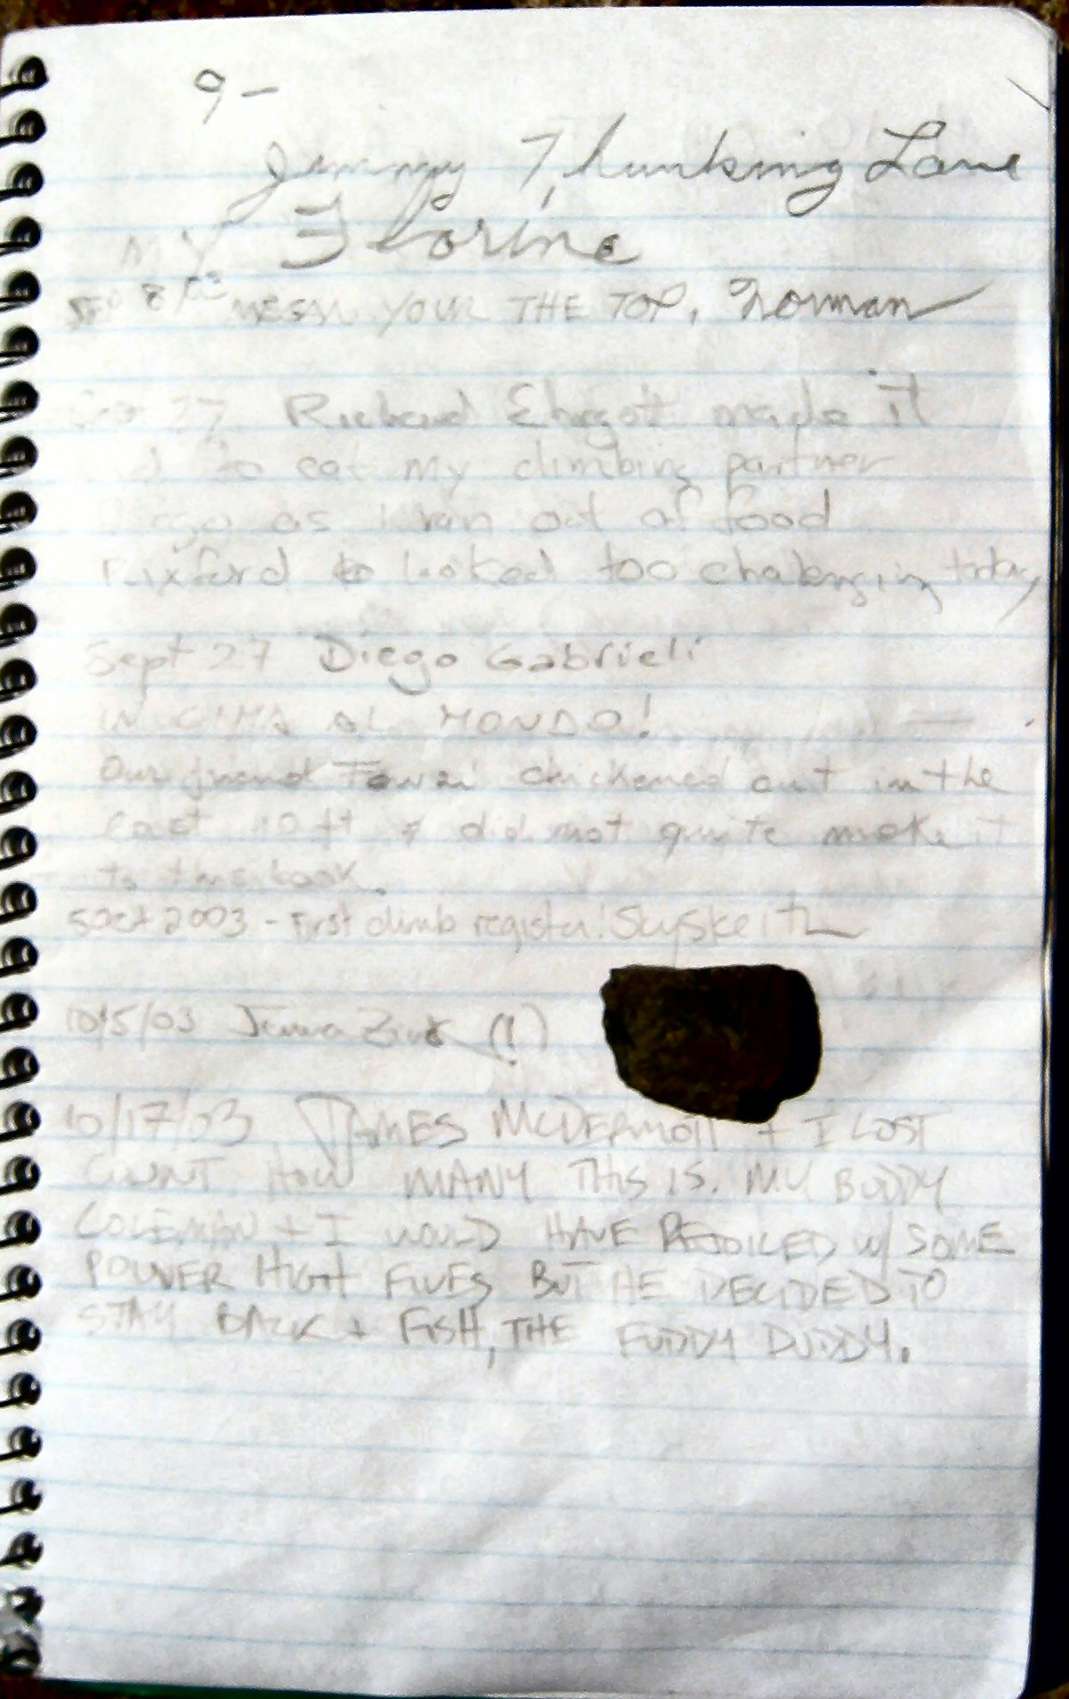 9-
Jimmy Lane
MY Florine
YOUR THE TOP, Norman
27 Richard made it
to eat my climbing partner
as I ran out of food
looked too today
Sept 27 Diego Gabrieli
IN CIMA AL MONDO!
Our friend chickened out in the
10 ft & did not quite make it
to this book.
5 Oct 2003 - First climb register! SuySkeith
10/5/03 Jenna (!)
10/17/03 JAMES MCDERMOTT + I LOST
COUNT HOW MANY THIS IS. MY BUDDY
COLEMAN + I WOULD HAVE REJOICED W/ SOME
POWER HIGH FIVES BUT HE DECIDED TO
STAY BACK + FISH, THE FUDDY DUDDY.